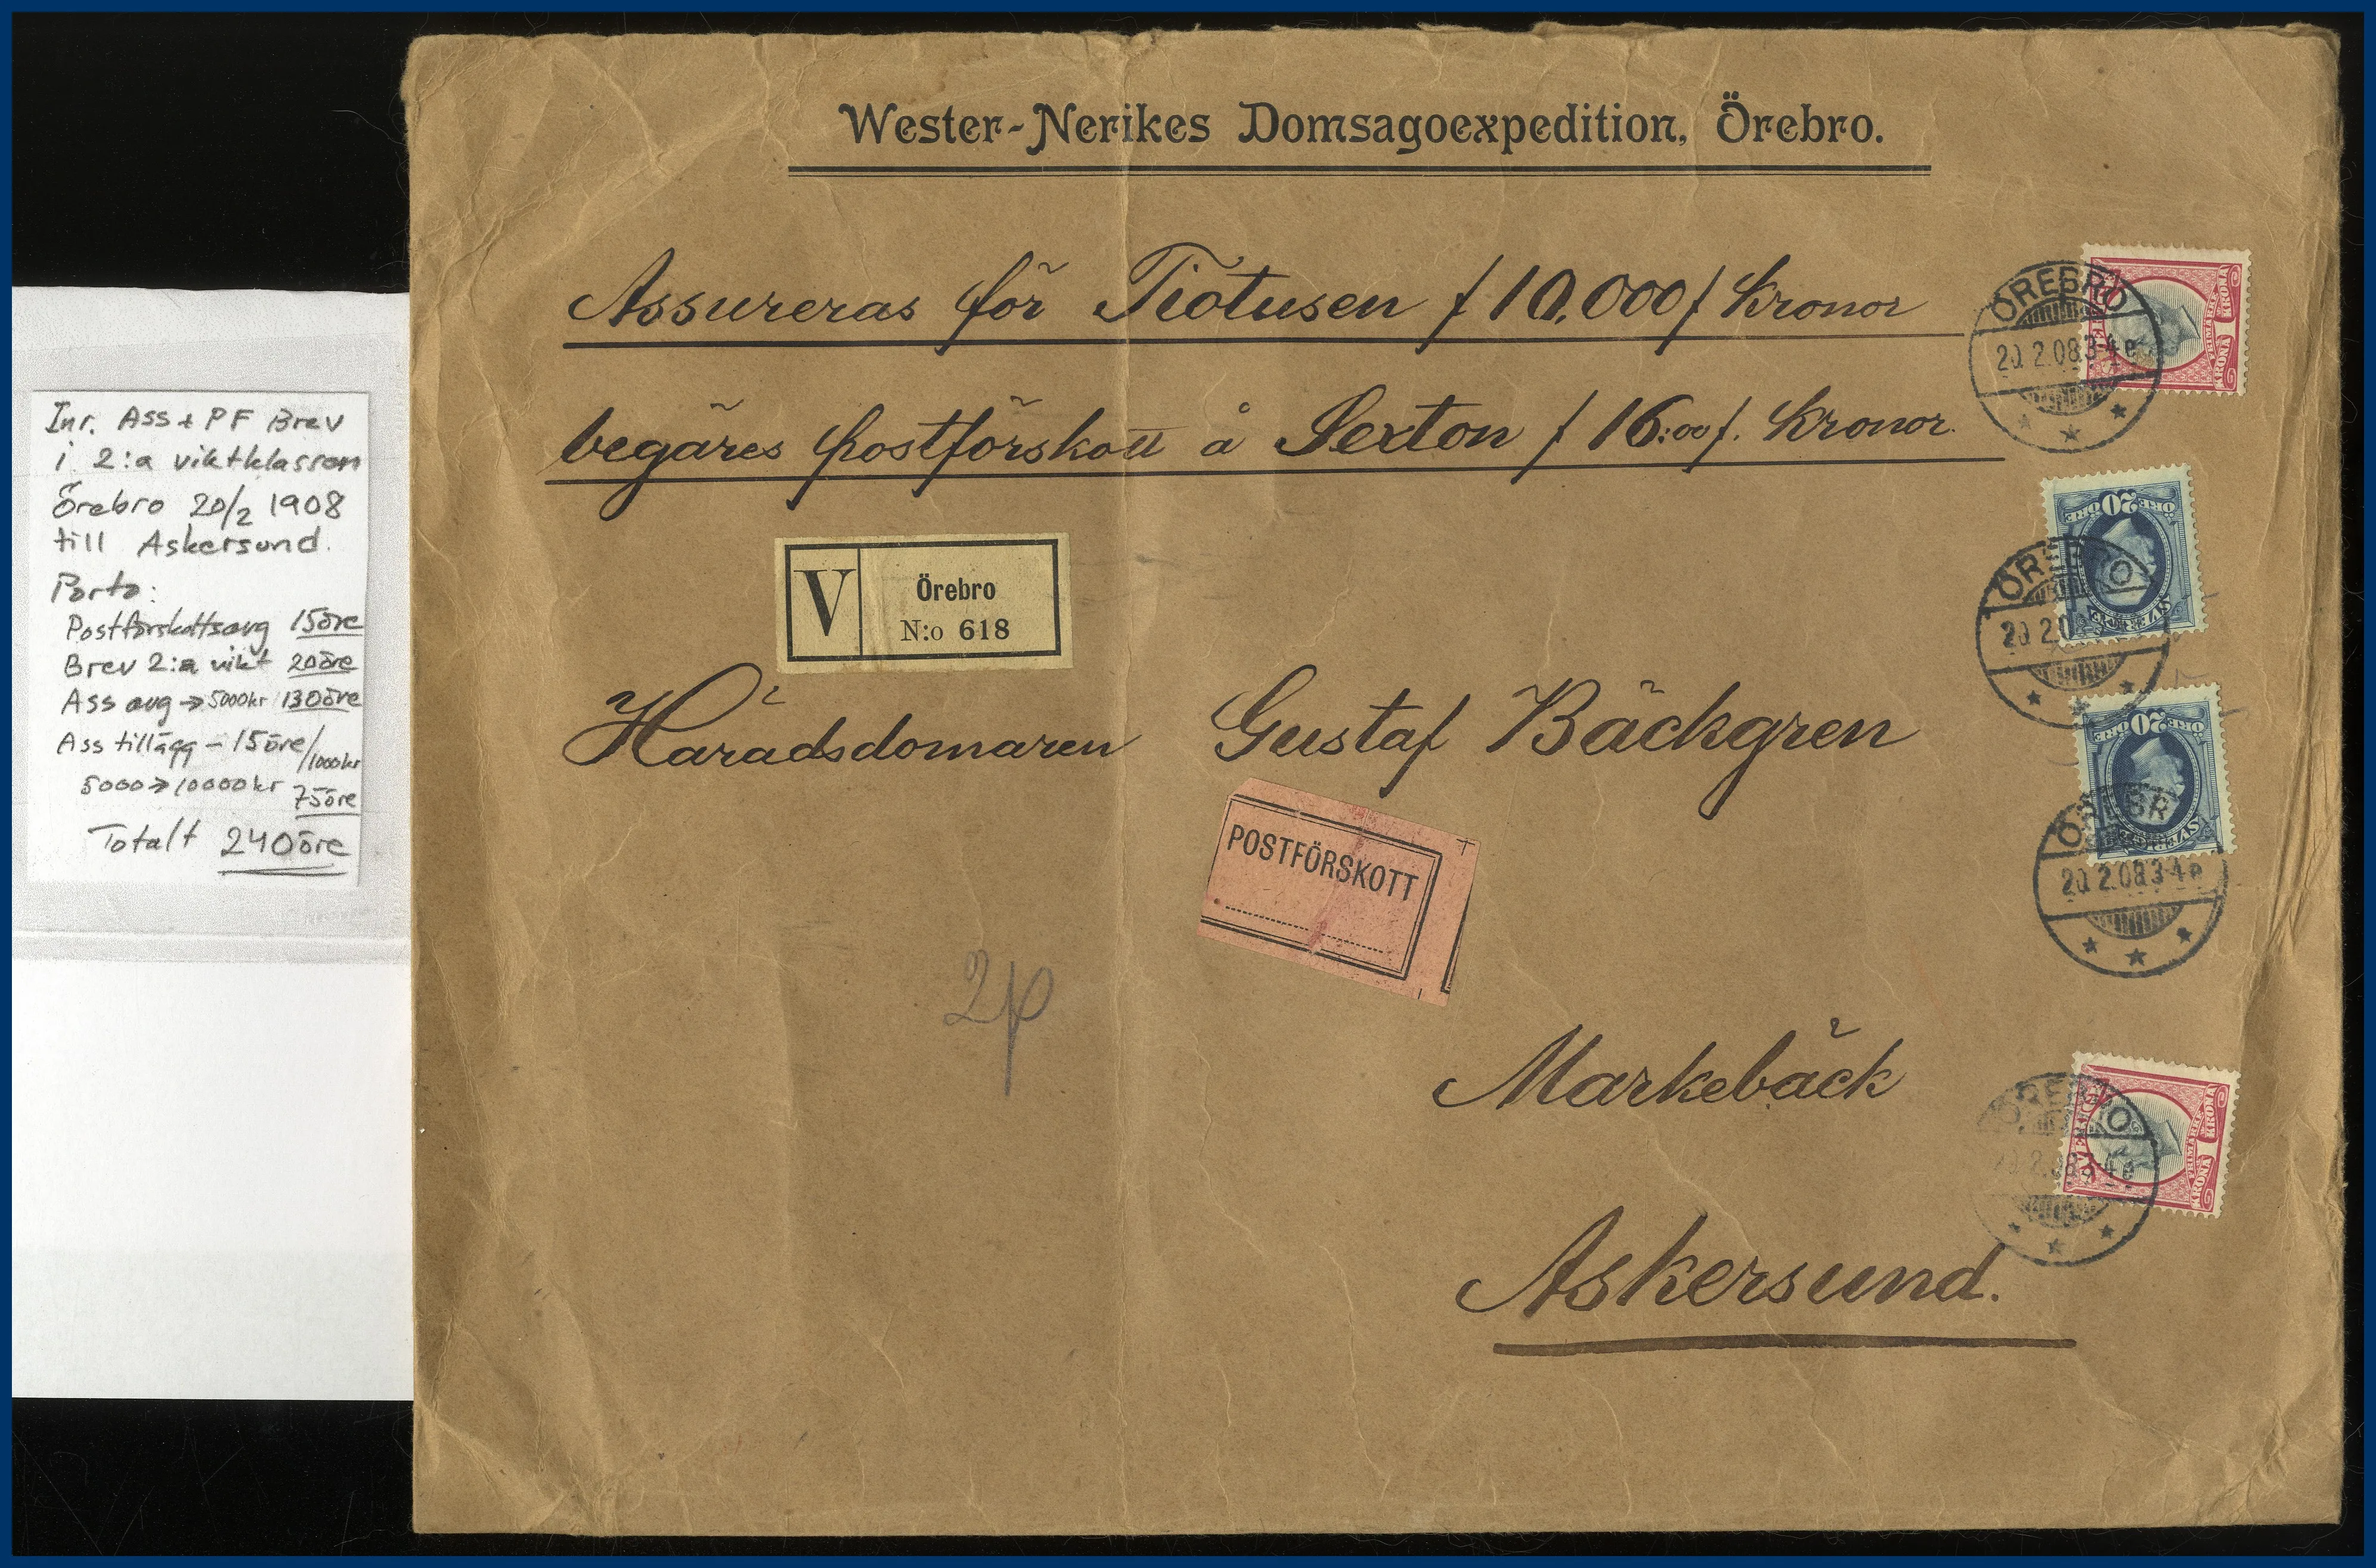 Wester-Nerikes Domsagoexpedition, Örebro.
Assureras för Tiotusen /10.000/ Kronor
begäres postförskott å Sexton /16:00/. Kronor.
V
Örebro
N:o 618
Häradsdomaren Gustaf Bäckgren
POSTFÖRSKOTT
2p
Markebäck
Askersund.
Inr. Ass + PF Brev
i 2:a viktklassen
Örebro 20/2 1908
till Askersund.
Porto:
Postförskottsavg 15öre
Brev 2:a vikt 20öre
Ass avg → 5000kr 130öre
Ass tillägg - 15öre/1000kr
5000 → 10000kr 75öre
Totalt 240öre
ÖREBRO
20 2.08 3-4 e
KRONA 1 KRONA
FRIMÄRKE
20
ÖRE ÖRE
SVERIGE
ÖREBRO
20 2.0
20
ÖRE ÖRE
SVERIGE
ÖREBR
20 2.08 3-4 e
ÖREBRO
2.08 3-4 e
KRONA 1 KRONA
FRIMÄRKE